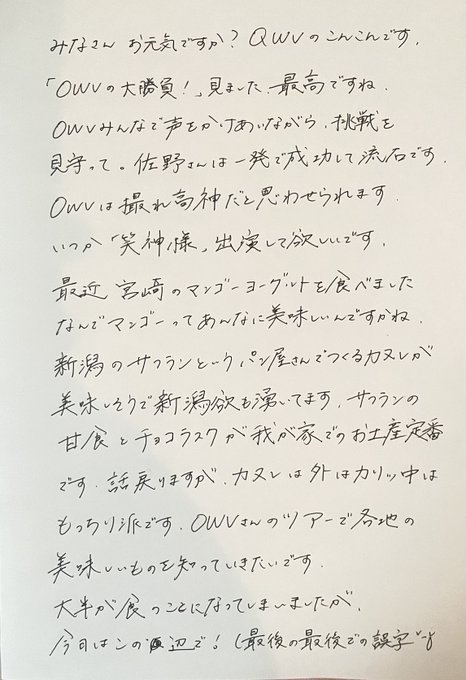 みなさん お元気ですか? QWVのこんこんです.
「OWVの大勝負!」見ました. 最高ですね.
OWVみんなで声をかけあいながら, 挑戦を
見守って。佐野さんは一発で成功して流石です.
OWVは撮れ高神だと思わせられます.
いつか「笑神様」出演して欲しいです.
最近 宮崎のマンゴーヨーグルトを食べました
なんでマンゴーってあんなに美味しいんですかね.
新潟のサフランというパン屋さんでつくるカヌレが
美味しそうで新潟欲も湧いてます. サフランの
甘食とチョコラスクが我が家でのお土産定番
です. 話戻りますが, カヌレは外はカリッ中は
もっちり派です. OWVさんのツアーで各地の
美味しいものを知っていきたいです.
大半が食のことになってしまいましたが,
今日はこの辺で! (最後の最後での誤字